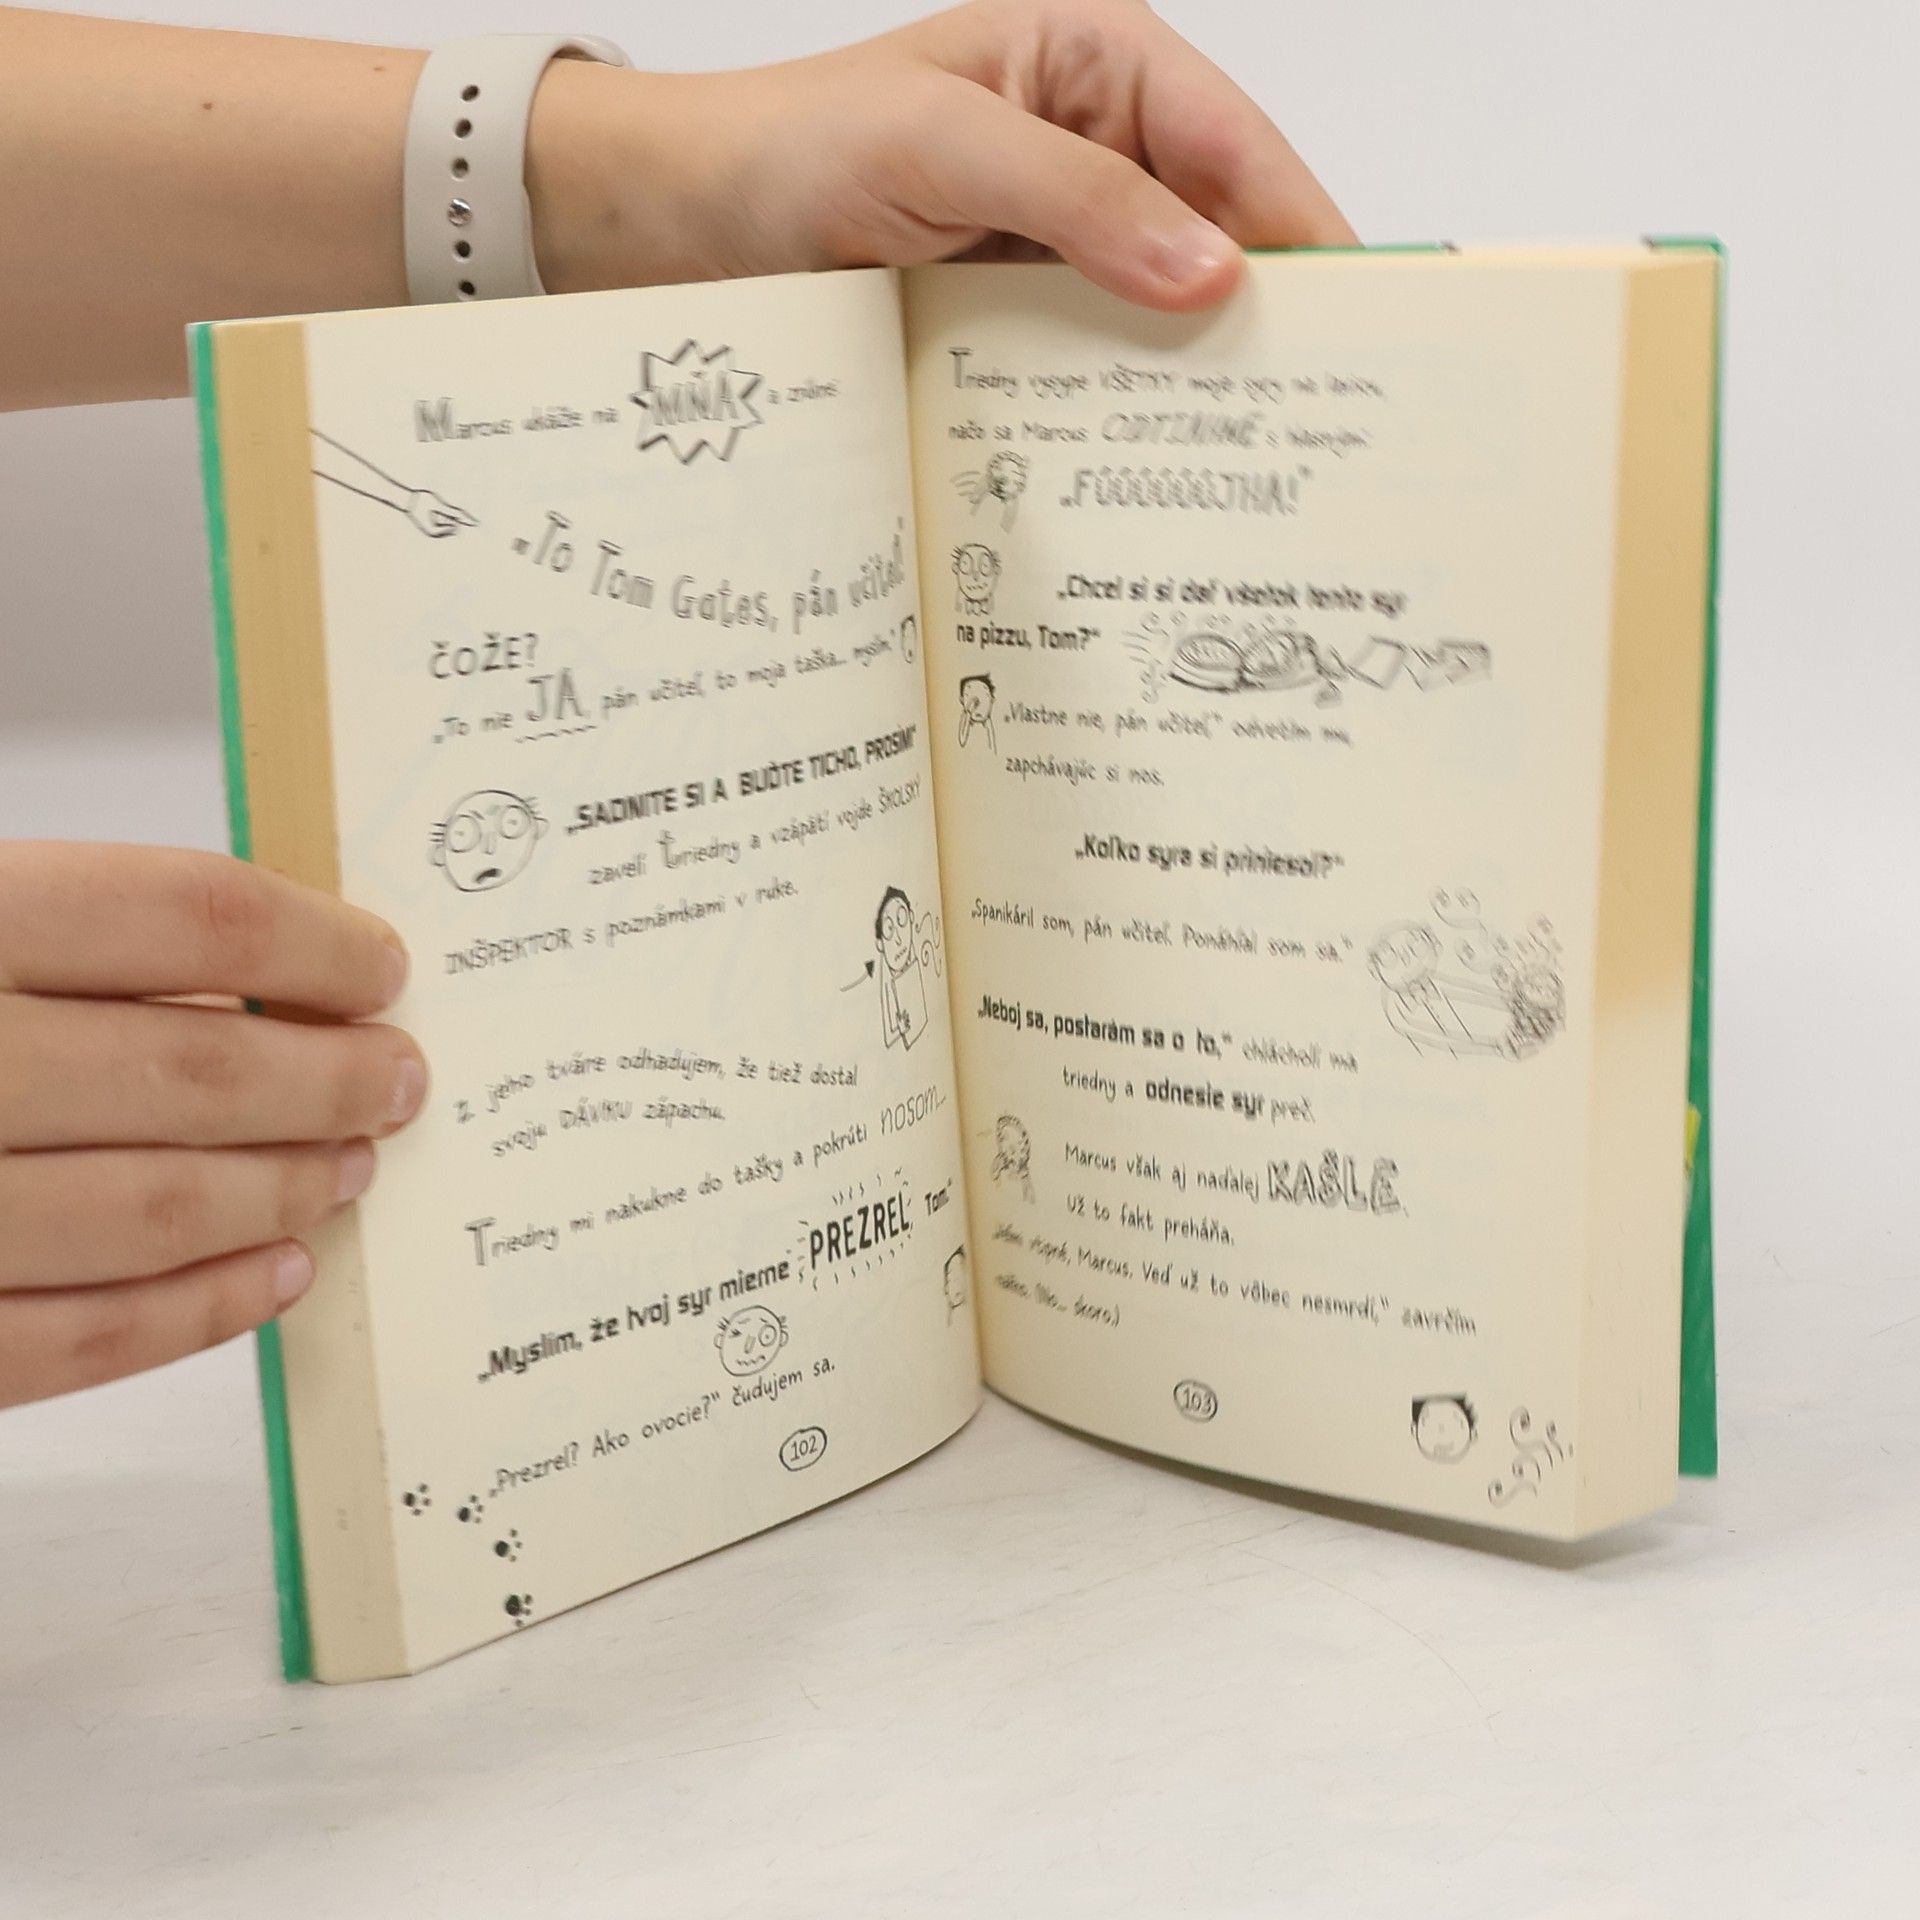 Marcus ukáže na MŇA a zvolá:
„To Tom Gates, pán učiteľ.“
ČOŽE?
„To nie JA, pán učiteľ, to moja taška... myslím.“
„SADNITE SI A BUĎTE TICHO, PROSÍM!“
zavelí triedny a vzápätí vojde ŠKOLSKÝ
INŠPEKTOR s poznámkami v ruke.
Z jeho tváre odhadujem, že tiež dostal
svoju DÁVKU zápachu.
Triedny mi nakukne do tašky a pokrúti nosom...
„Myslím, že tvoj syr mierne PREZREL, Tom.“
„Prezrel? Ako ovocie?“ čudujem sa.
102
Triedny vysype VŠETKY moje syry na lavicu,
načo sa Marcus ODTIAHNE s hlasným:
„FÚÚÚÚÚÚJHA!“
„Chcel si si dať všetok tento syr
na pizzu, Tom?“
„Vlastne nie, pán učiteľ,“ odvetím mu,
zapchávajúc si nos.
„Koľko syra si priniesol?“
„Spanikáril som, pán učiteľ. Ponáhľal som sa.“
„Neboj sa, postarám sa o to,“ chlácholí ma
triedny a odnesie syr preč.
Marcus však aj naďalej KAŠLE.
Už to fakt preháňa.
vtipné, Marcus. Veď už to vôbec nesmrdí,“ zavrčím
naňho. (No... skoro.)
103